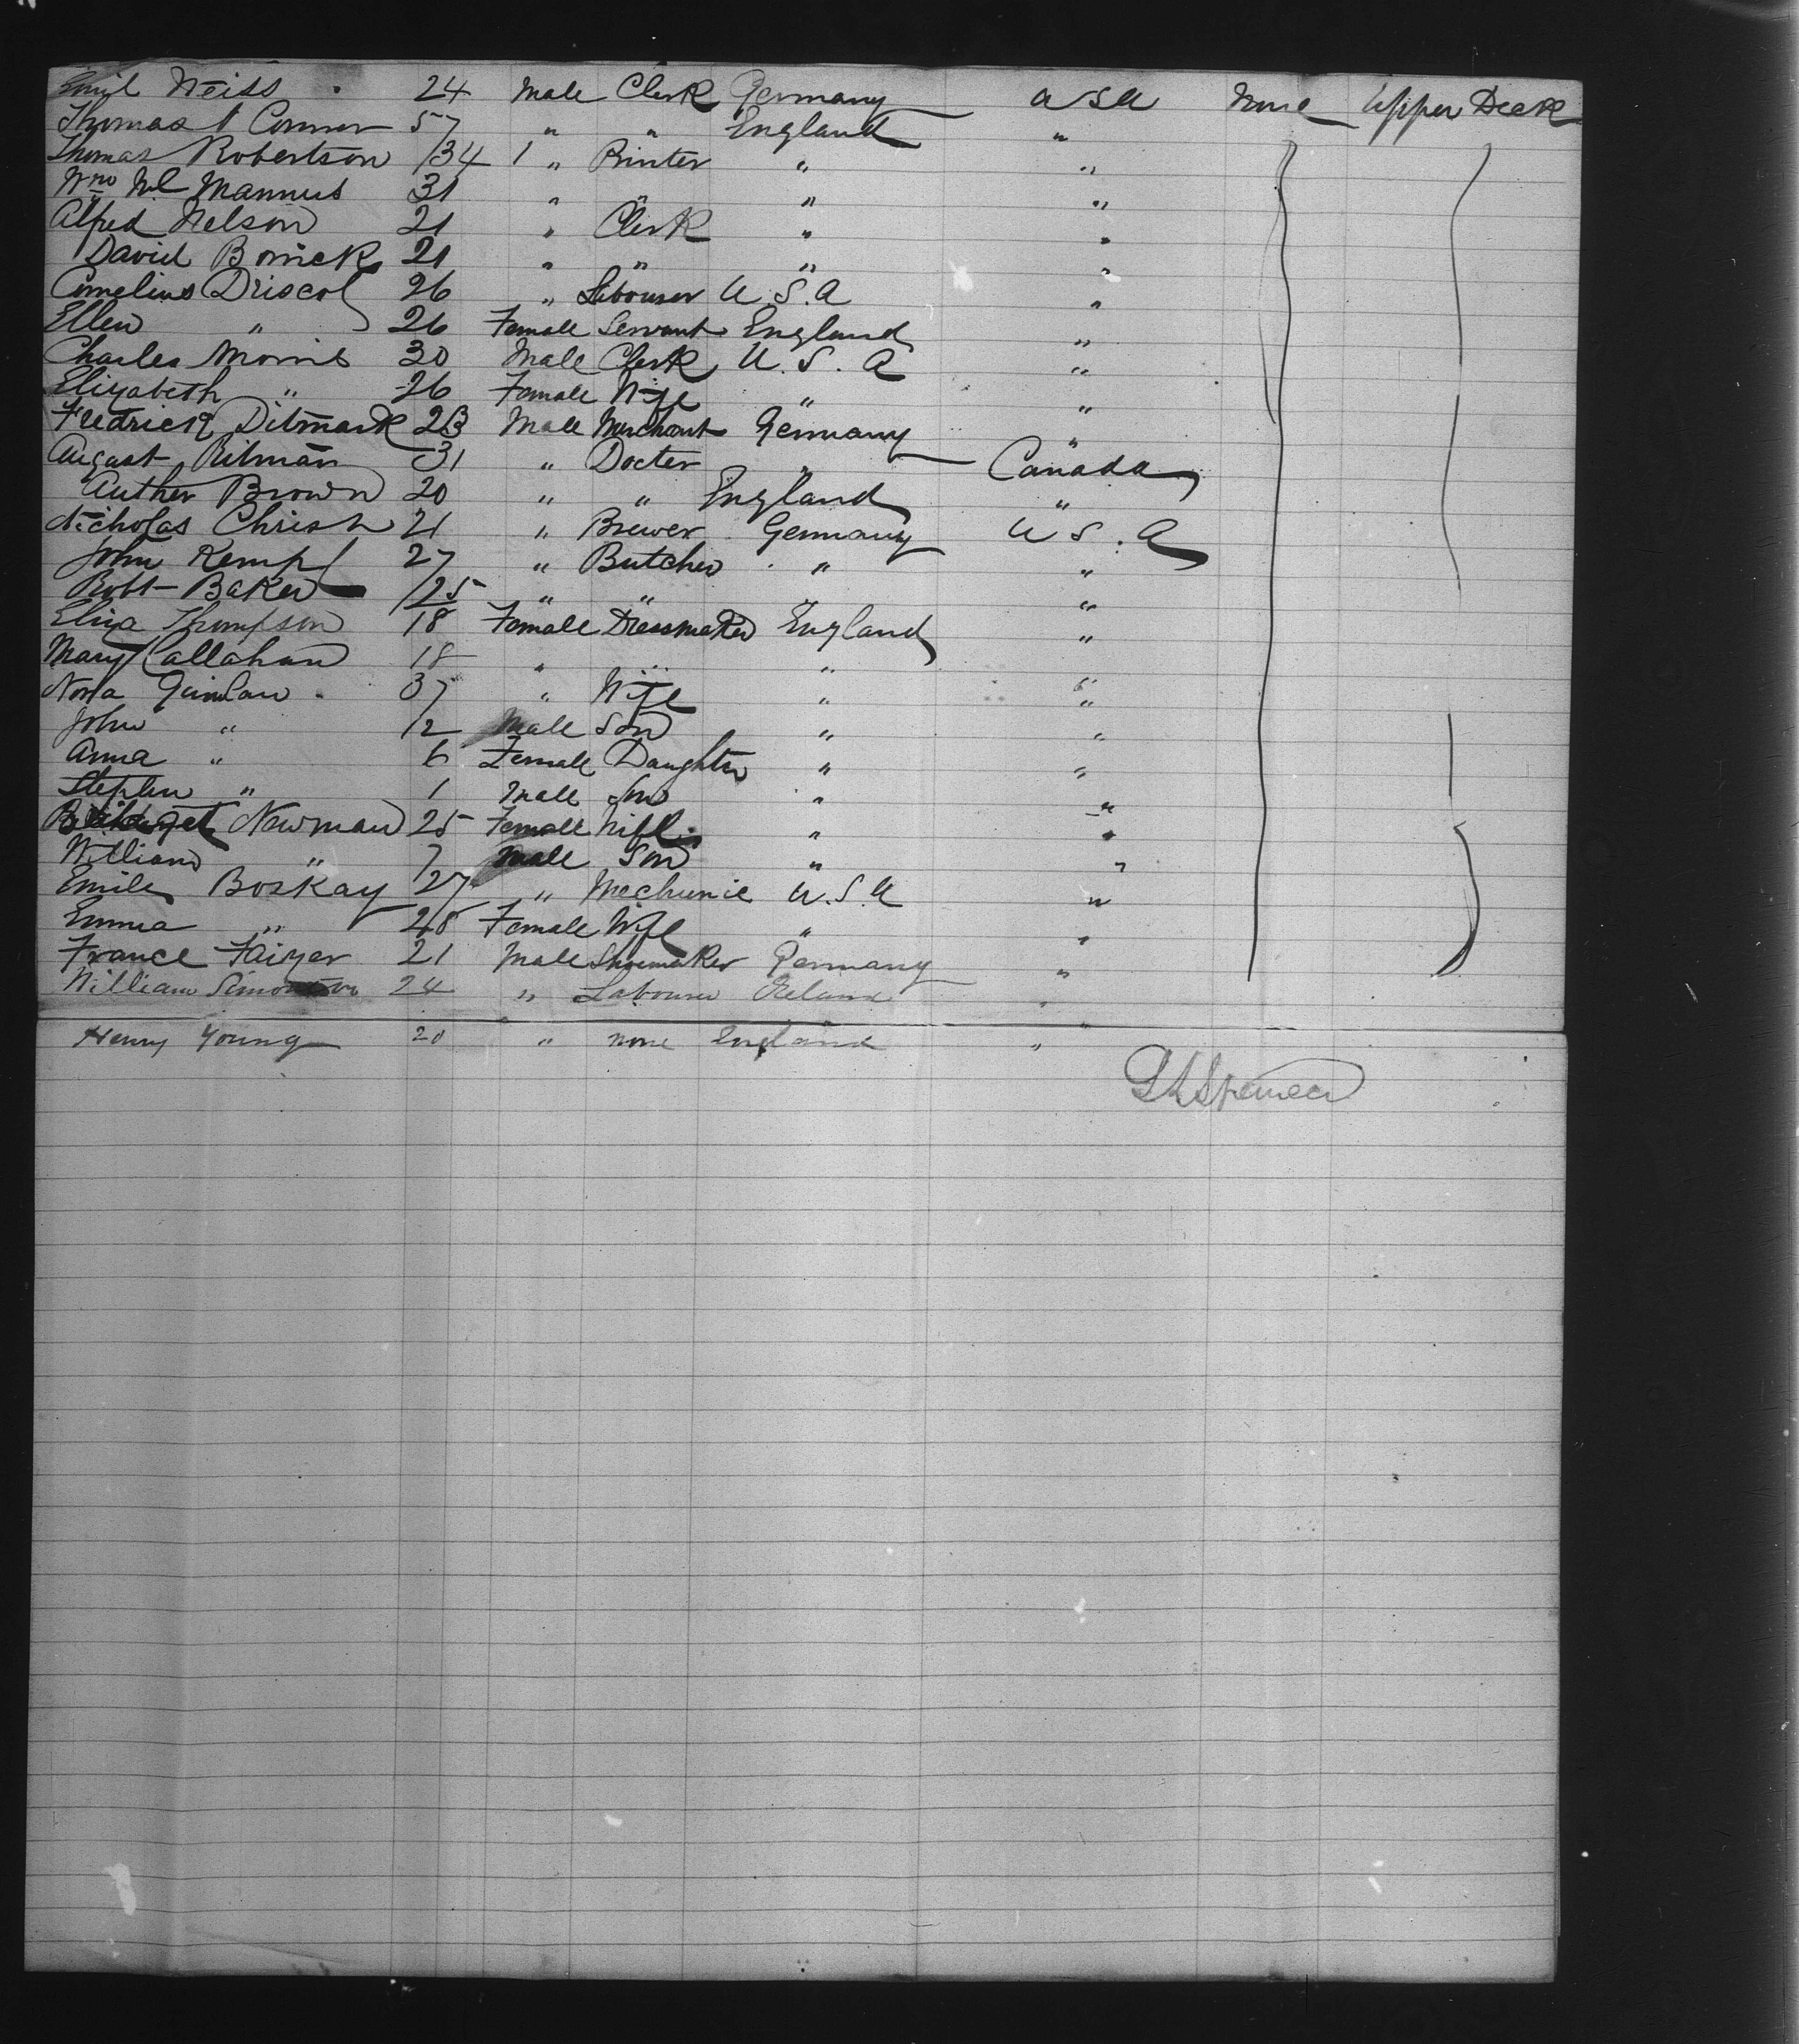 Emil Weiss 24 Male Clerk Germany U S A None Upper Deck
Thomas O Connor 57 " " England "
Thomas Robertson 34 1 " Printer " "
Wm Mc Mannus 31 " " " "
Alfred Nelson 21 " Clerk " "
David Bonick 21 " " " "
Cornelius Driscol 26 " Labourer U.S.A "
Ellen " 26 Female Servant England "
Charles Morris 30 Male Clerk U.S.A "
Elizabeth " 26 Female Wife " "
Fredrick Ditmark 23 Male Merchant Germany "
August Ritman 31 " Docter " Canada
Auther Brown 20 " " England "
Nicholas Christ 21 " Brewer Germany U S.A
John Kempf 27 " Butcher " "
Robt Baker 25 " " " "
Eliza Thompson 18 Female Dressmaker England "
Mary Callahan 18 " " " "
Nora Quinlan 37 " Wife " "
John " 12 Male Son " "
Anna " 6 Female Daughter " "
Stephen " 1 Male Son " "
Bridget Newman 25 Female Wife " "
William " 7 Male Son " "
Emile Boskay 27 " Mechanic U.S.A "
Emma " 28 Female Wife " "
France Faizer 21 Male Shoemaker Germany "
William 24 " Labourer Ireland "
Henry Young 20 " none England "
Spencer